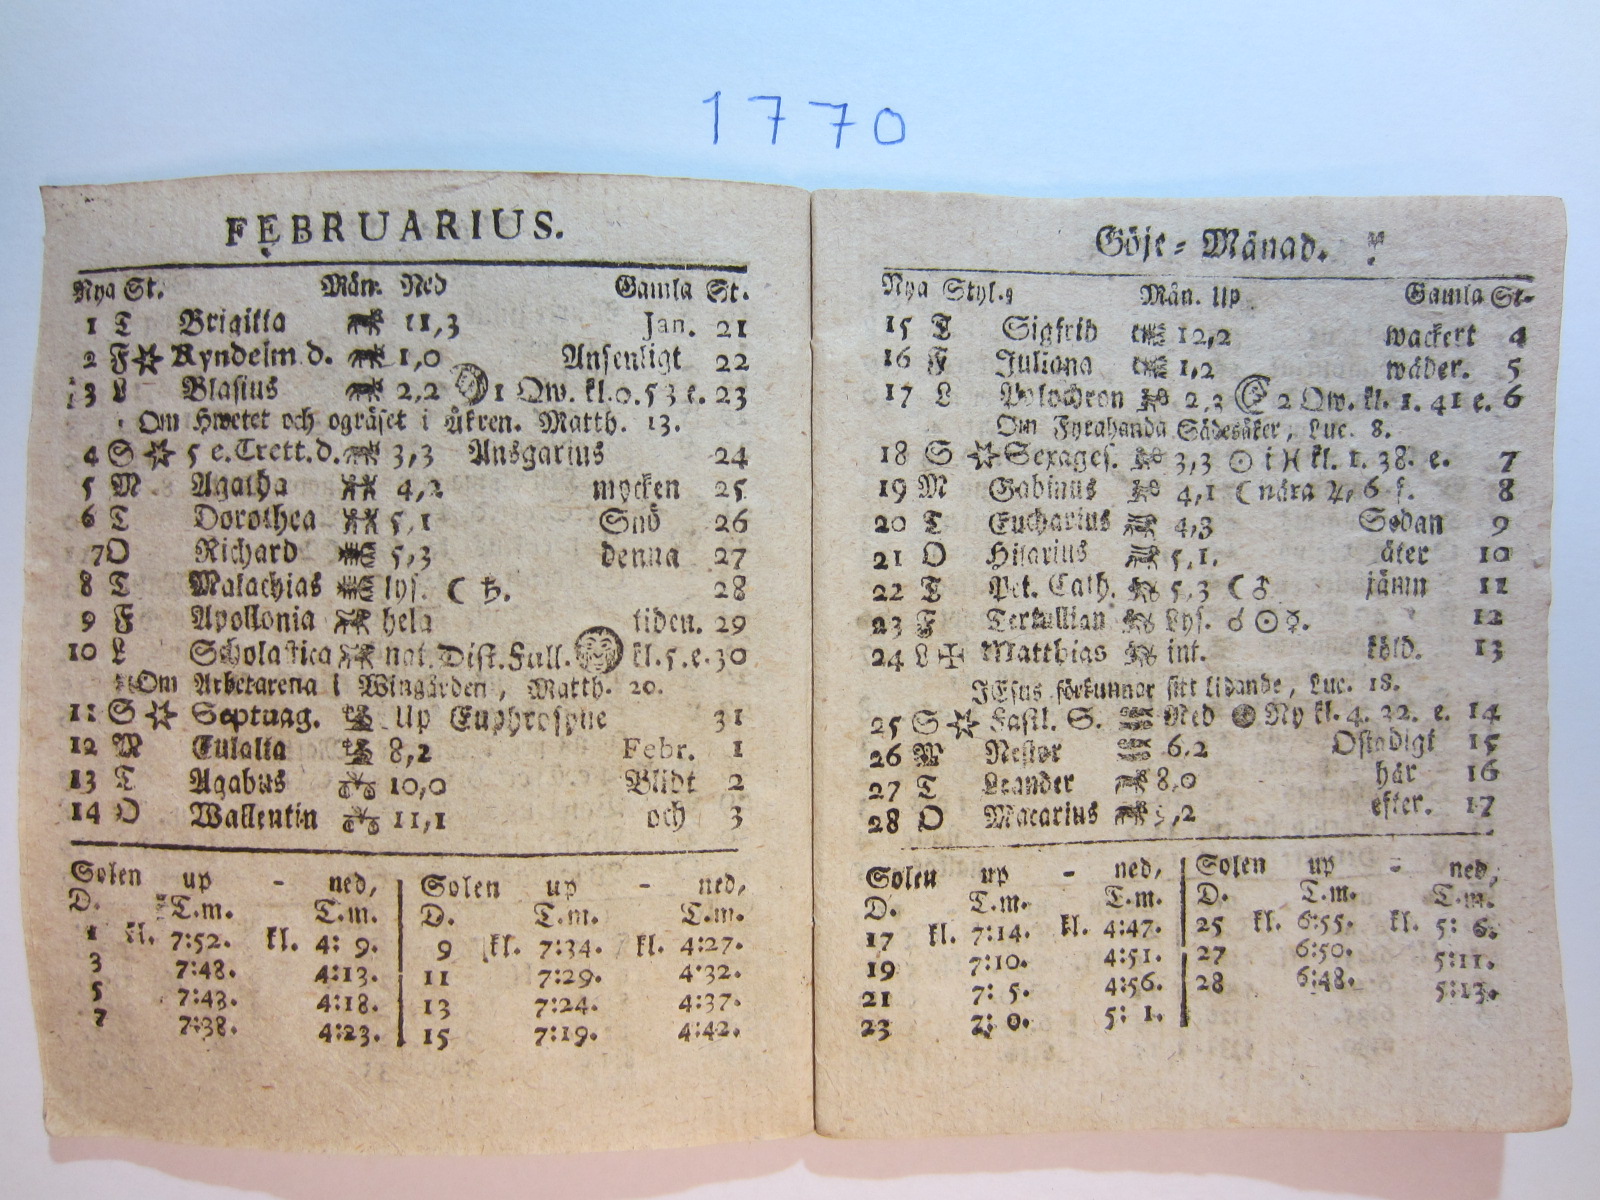 1770
FEBRUARIUS.
Nya St. Mån. Ned Gamla St.
1 T Brigitta 11,3 Jan. 21
2 F Kyndelm d. 1,0 Ansenligt 22
3 L Blasius 2,2 1 Qw. kl. 0. 53 e. 23
Om Hwetet och ogräset i Åkren. Matth. 13.
4 S 5 e. Trett. d. 3,3 Ansgarius 24
5 M Agatha 4,2 mycken 25
6 T Dorothea 5,1 Snö 26
7 O Richard 5,3 denna 27
8 T Malachias lys. ☾ ♄. 28
9 F Apollonia hela tiden. 29
10 L Scholastica nat. Dist. Full. kl. 5. e. 30
Om Arbetarena i Wingården, Matth. 20.
11 S Septuag. Up Euphrosyne 31
12 M Eulalia 8,2 Febr. 1
13 T Agabus 10,0 Blidt 2
14 O Wallentin 11,1 och 3
Solen up - ned, Solen up - ned,
D. T.m. T.m. D. T.m. T.m.
1 kl. 7:52. kl. 4: 9. 9 kl. 7:34. kl. 4:27.
3 7:48. 4:13. 11 7:29. 4:32.
5 7:43. 4:18. 13 7:24. 4:37.
7 7:38. 4:23. 15 7:19. 4:42.
Göje-Månad.
Nya Styl. Mån. Up Gamla St.
15 T Sigfrid 12,2 wackert 4
16 F Juliana 1,2 wäder. 5
17 L Polychron 2,3 2 Qw. kl. 1. 41 e. 6
Om Fyrahanda Sädesåker, Luc. 8.
18 S Sexages. 3,3 ☉ i ♓ kl. 1. 38. e. 7
19 M Gabinus 4,1 ☾ nära ♃, 6 f. 8
20 T Eucharius 4,3 Sedan 9
21 O Hilarius 5,1. åter 10
22 T Pet. Cath. 5,3 ☾ ♂ jämn 11
23 F Tertullian Lys. ☌ ☉ ☿. 12
24 L Matthias int. köld. 13
JEsus förkunnar sitt lidande, Luc. 18.
25 S Fastl. S. Ned Ny kl. 4. 22. e. 14
26 M Nestor 6.2 Ostadigt 15
27 T Leander 8,0 här 16
28 O Macarius ,2 efter. 17
Solen up - ned, Solen up - ned,
D. T.m. T.m. D. T.m. T.m.
17 kl. 7:14. kl. 4:47. 25 kl. 6:55. kl. 5: 6.
19 7:10. 4:51. 27 6:50. 5:11.
21 7: 5. 4:56. 28 6:48. 5:13.
23 7: 0. 5: 1.